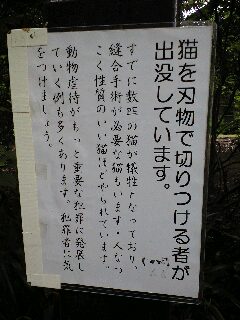 猫を刃物で切りつける者が
出没しています。
すでに数匹の猫が犠牲となっており、
縫合手術が必要な猫もいます。人なつ
こく性質のいい猫ほどやられています。
動物虐待がもっと重要な犯罪に発展し
ていく例も多くあります。犯罪者に気
をつけましょう。